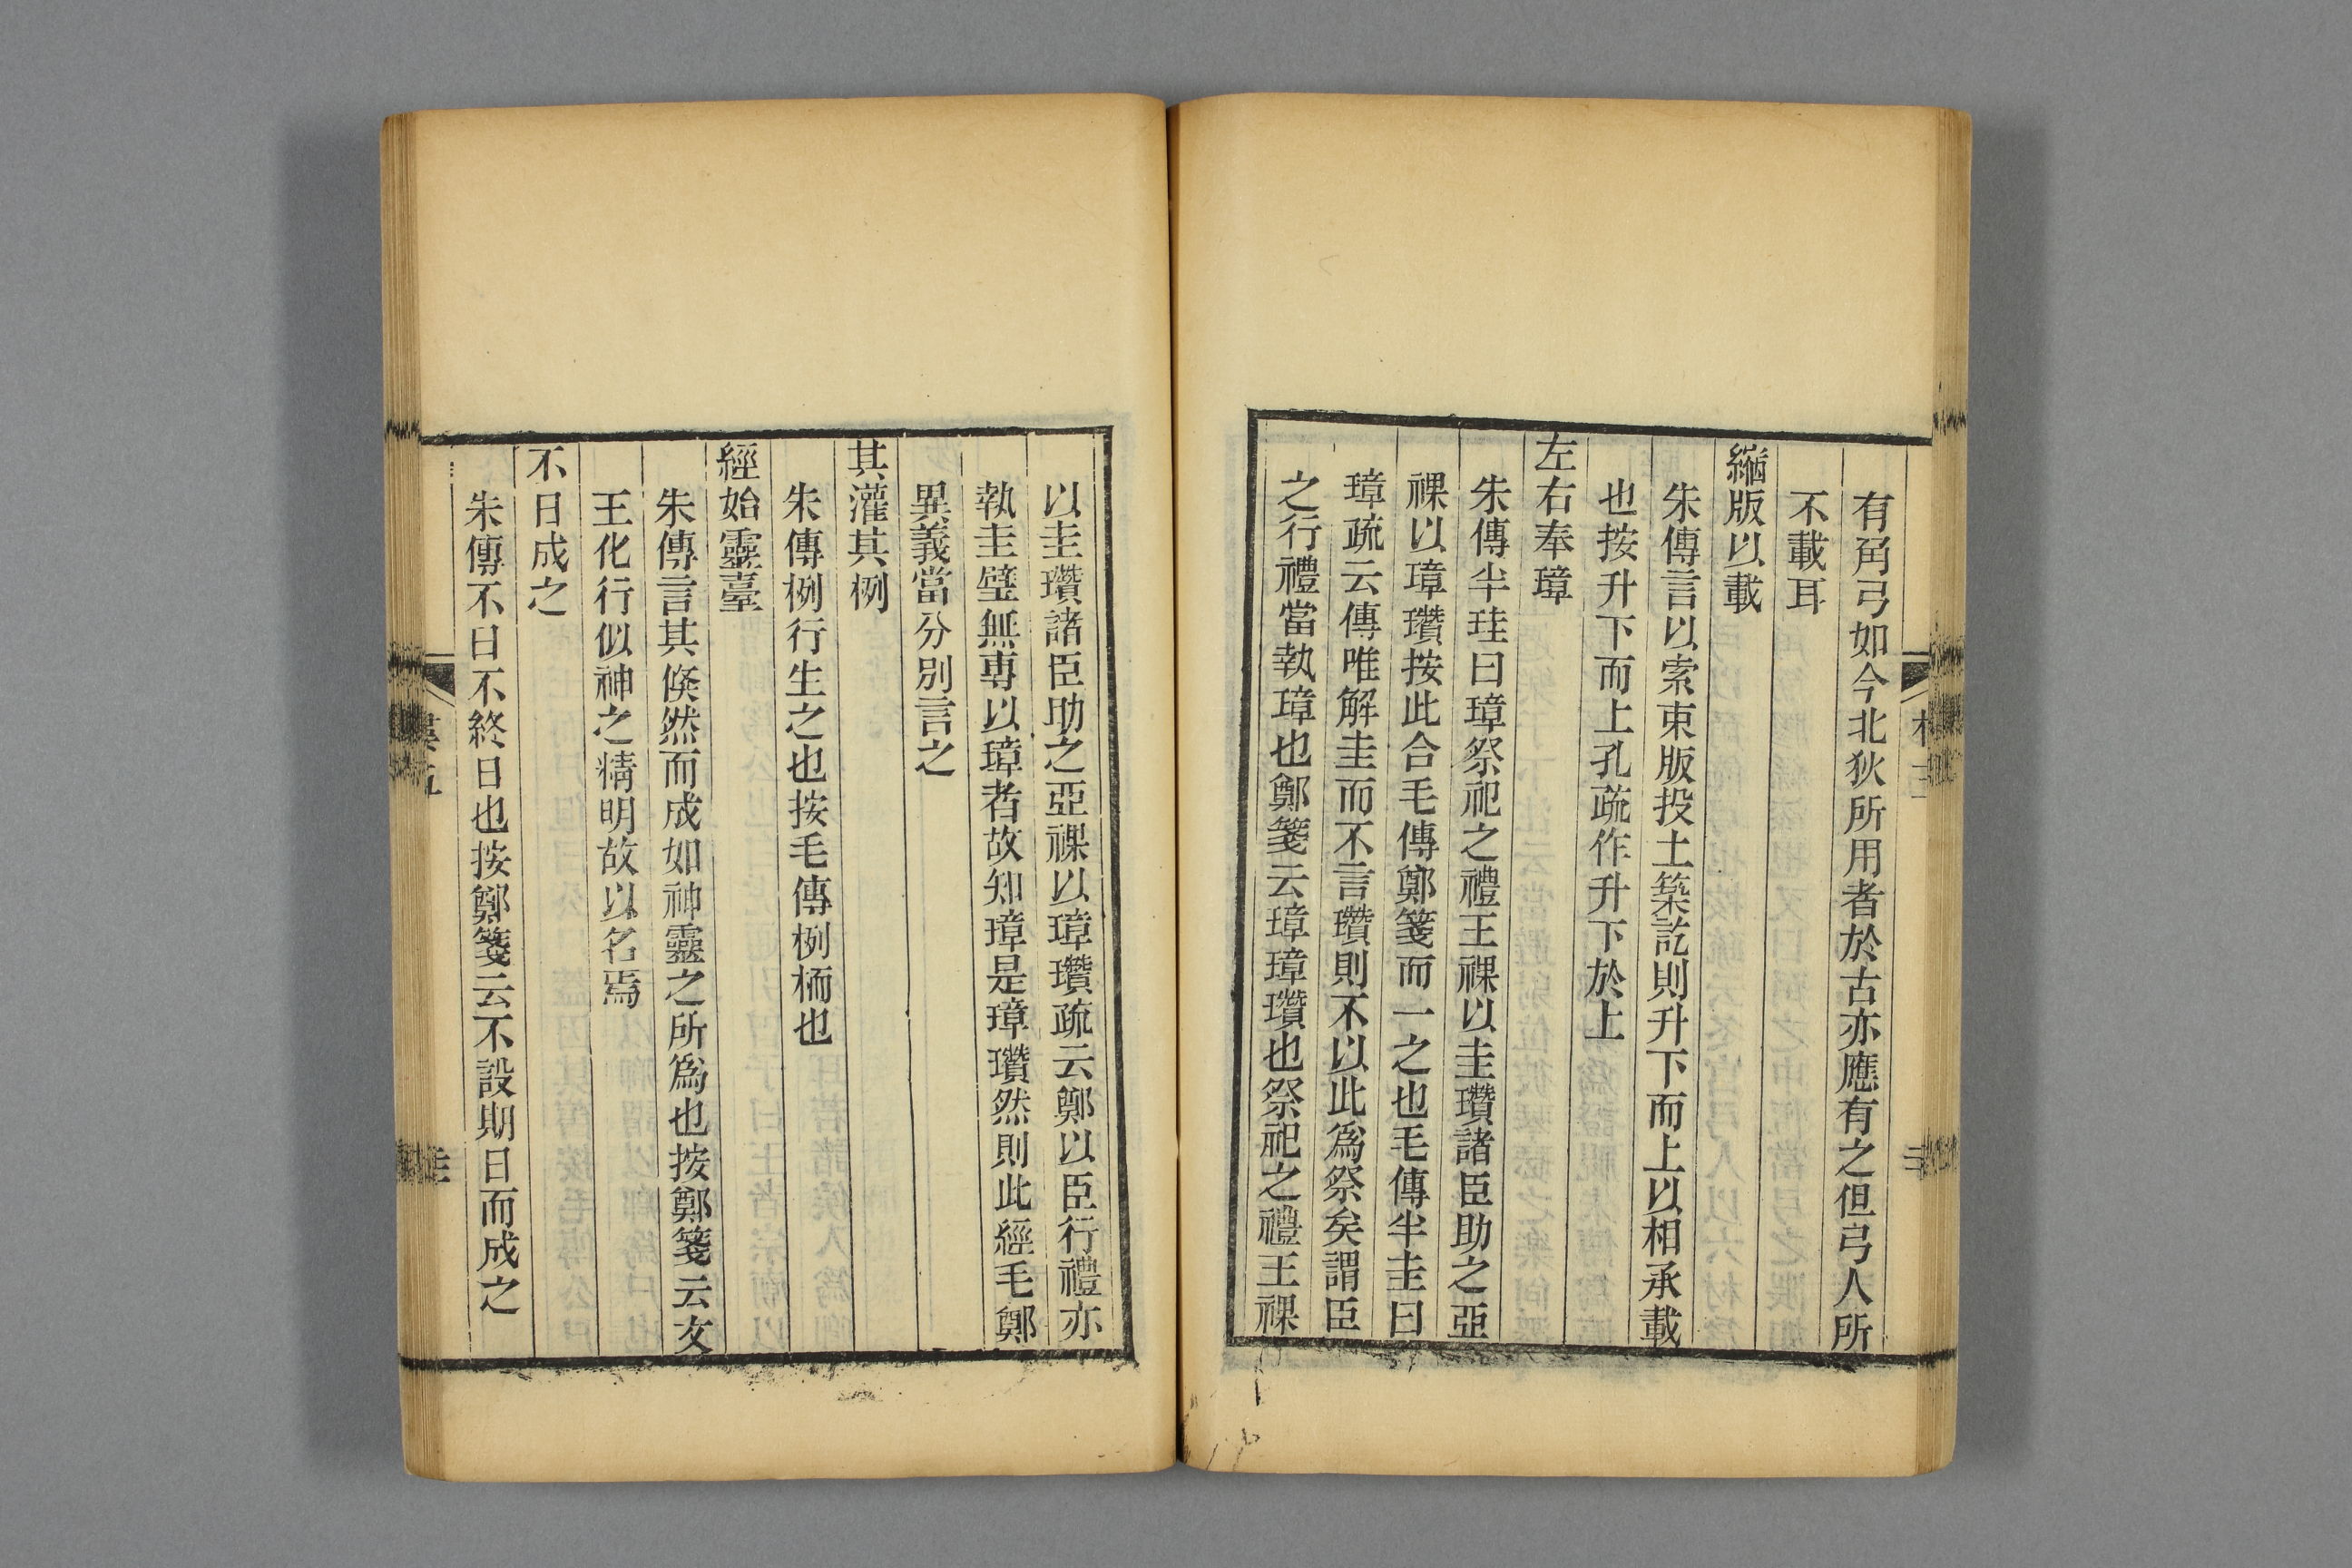 有角弓如今北狄所用者於古亦應有之但弓人所
不載耳
縮版以載
朱傳言以索束版投土築訖則升下而上以相承載
也按升下而上孔疏作升下於上
左右奉璋
朱傳半珪曰璋祭祀之禮王祼以圭瓚諸臣助之亞
祼以璋瓚按此合毛傳鄭箋而一之也毛傳半圭曰
璋疏云傳唯解圭而不言瓚則不以此爲祭矣謂臣
之行禮當執璋也鄭箋云璋璋瓚也祭祀之禮王祼
以圭瓚諸臣助之亞祼以璋瓚疏云鄭以臣行禮亦
執圭璧無專以璋者故知璋是璋瓚然則此經毛鄭
異義當分別言之
其灌其栵
朱傳栵行生之也按毛傳栵栭也
經始靈臺
朱傳言其倏然而成如神靈之所爲也按鄭箋云文
王化行似神之精明故以名焉
不日成之
朱傳不日不終日也按鄭箋云不設期日而成之